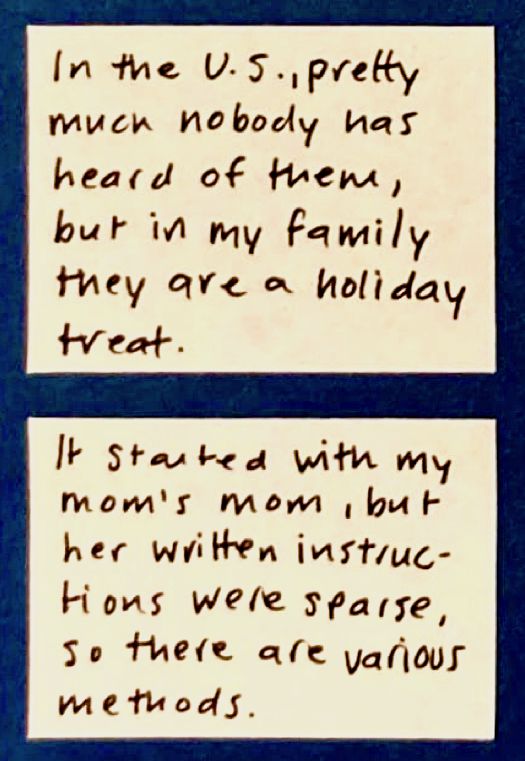 In the U.S., pretty
much nobody has
heard of them,
but in my family
they are a holiday
treat.
It started with my
mom's mom, but
her written instruc-
tions were sparse,
so there are various
methods.